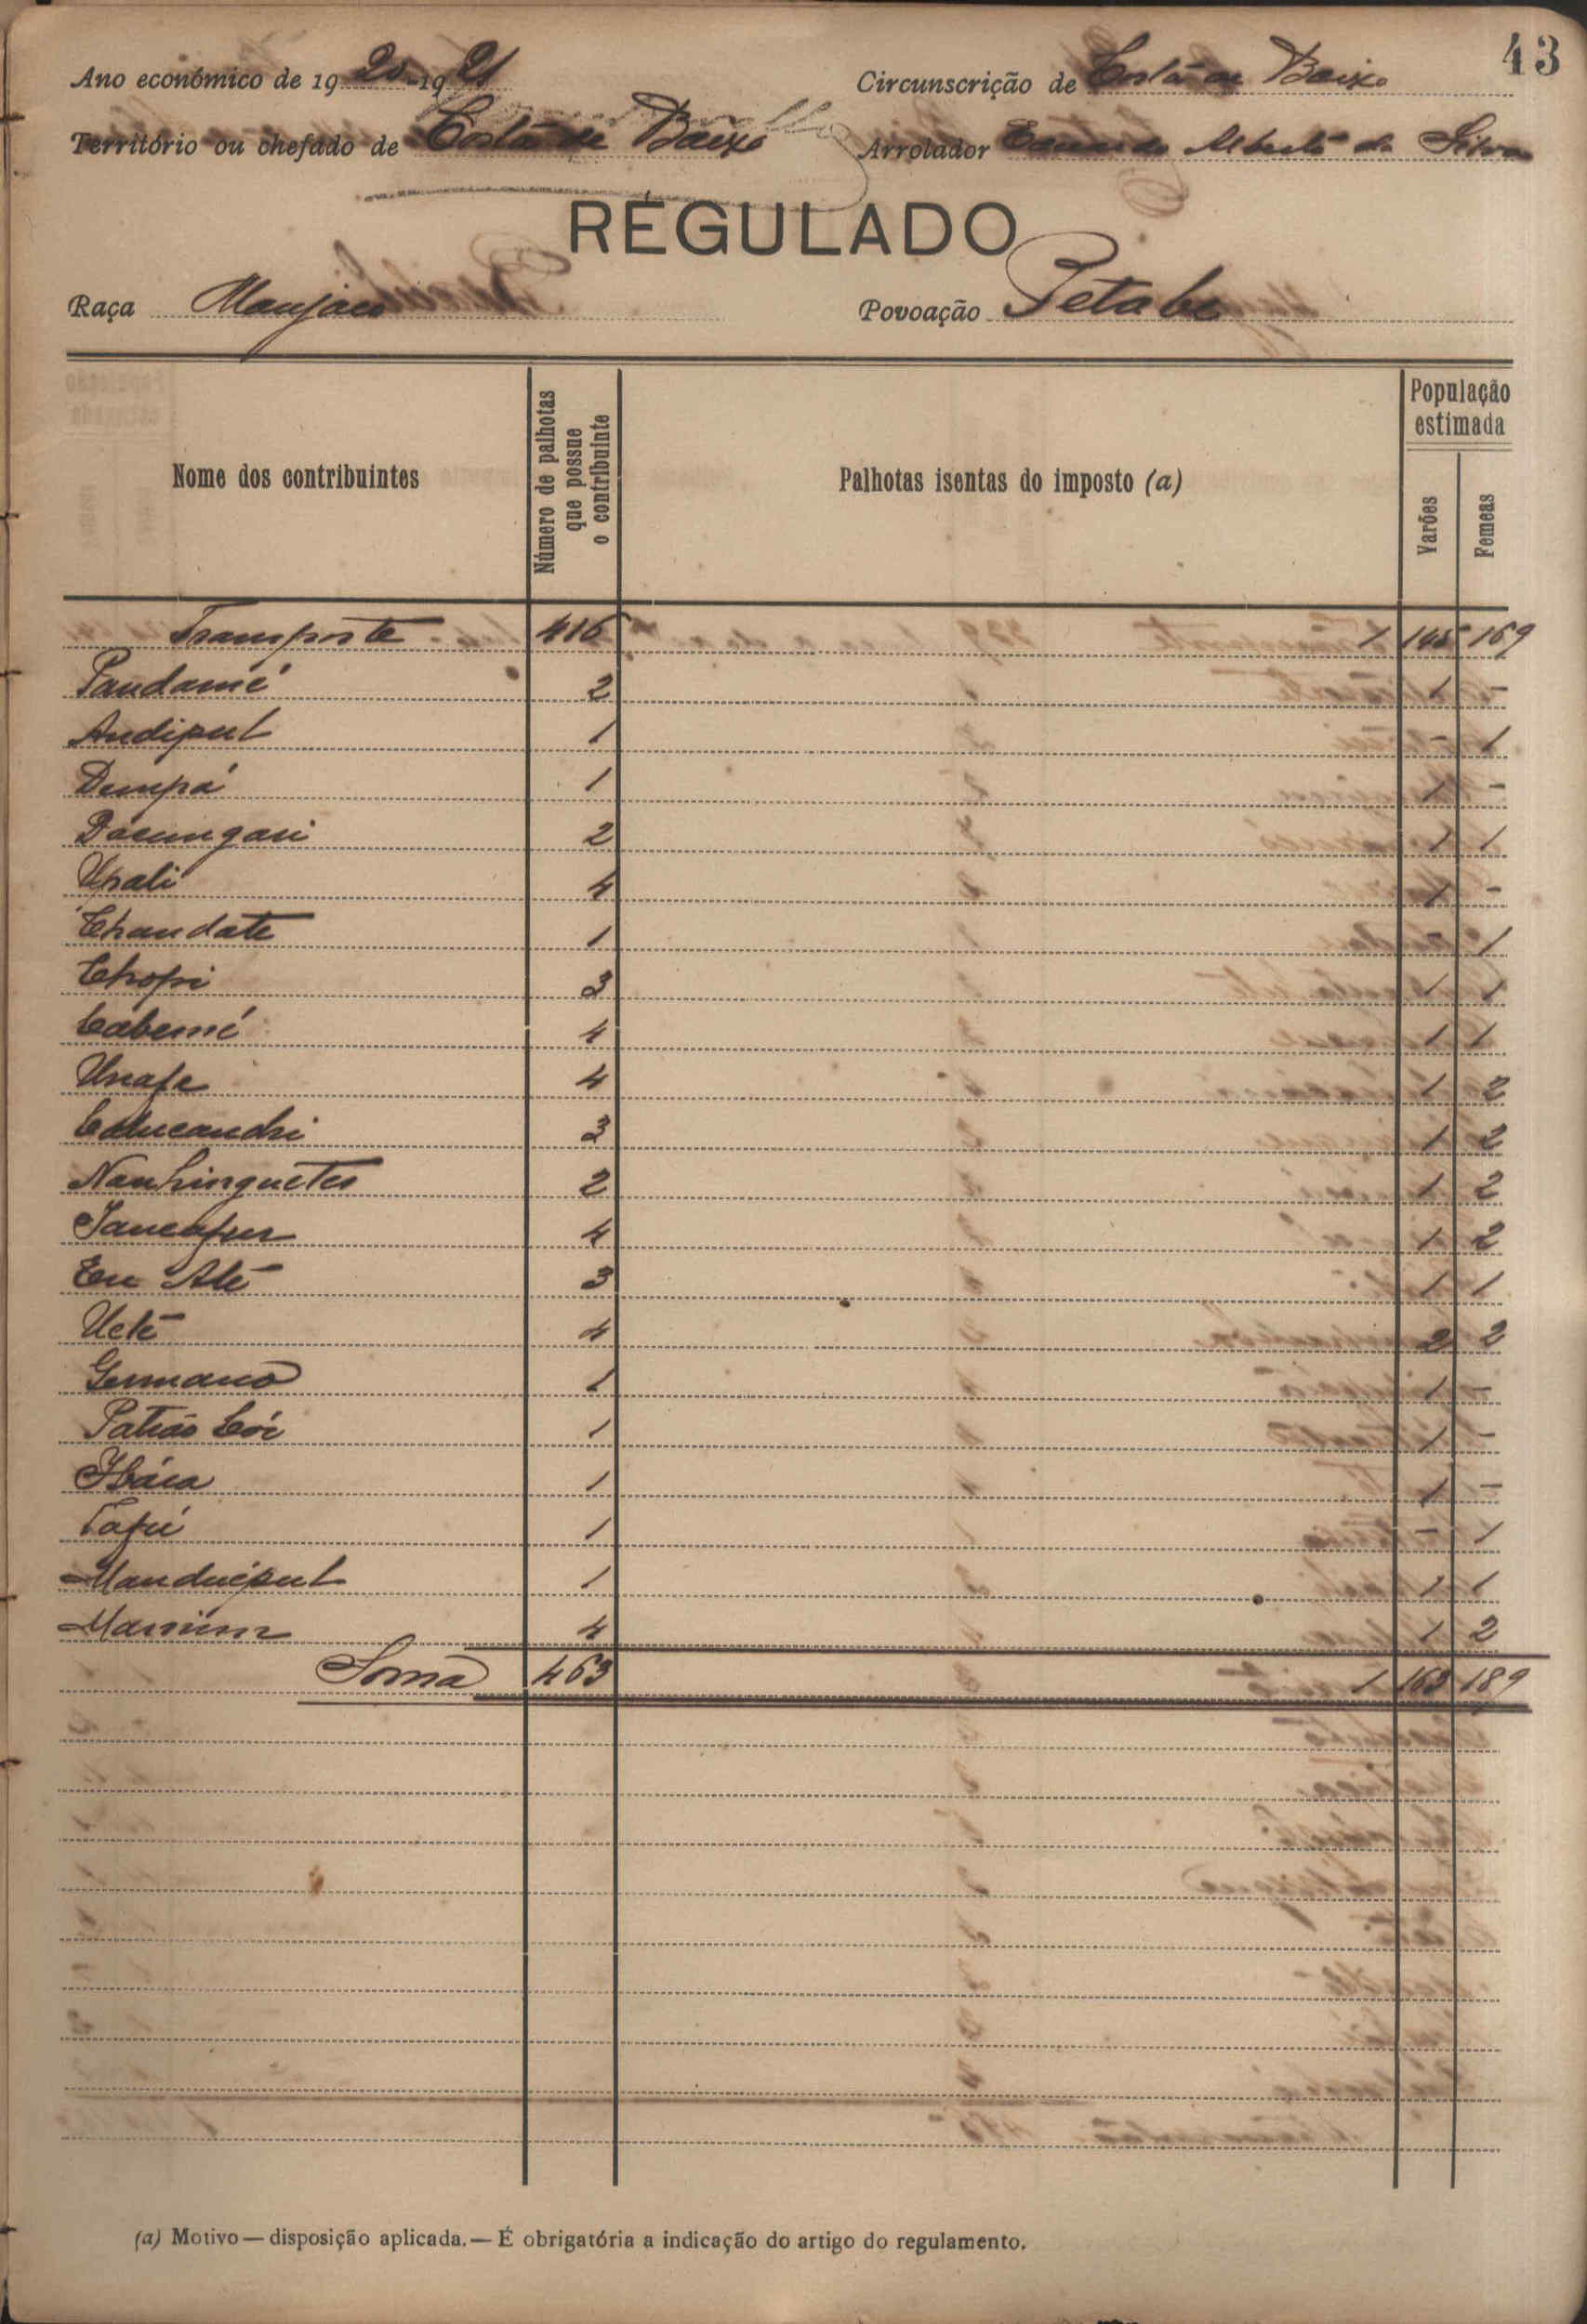 43
Ano económico de 1920-1921 Circunscrição de Costa de Baixo
Território ou chefado de Costa de Baixo Arrolador Eduardo Alberto da Silva
REGULADO
Raça Manjaco Povoação Petabe
Nome dos contribuintes Número de palhotas que possue o contribuinte Palhotas isentas do imposto (a) População estimada Varões Femeas
Transporte 416 1 145 169
Pandamé 2 1 -
Andiput 1 - 1
Dempá 1 1 -
Dacungari 2 1 1
Upali 4 1 -
Chandate 1 - 1
Chopi 3 1 1
Cabemé 4 1 1
Unafe 4 1 2
3 1 2
Nanhinguetes 2 1 2
Jancafur 4 1 2
Eu Até 3 1 1
Uetê 4 2 2
Germano 1 1 -
Patrão Cói 1 1 -
1 1 -
Tafú 1 - 1
Manduiput 1 1 1
4 1 2
Soma 463 1 163 189
(a) Motivo — disposição aplicada. — É obrigatória a indicação do artigo do regulamento.